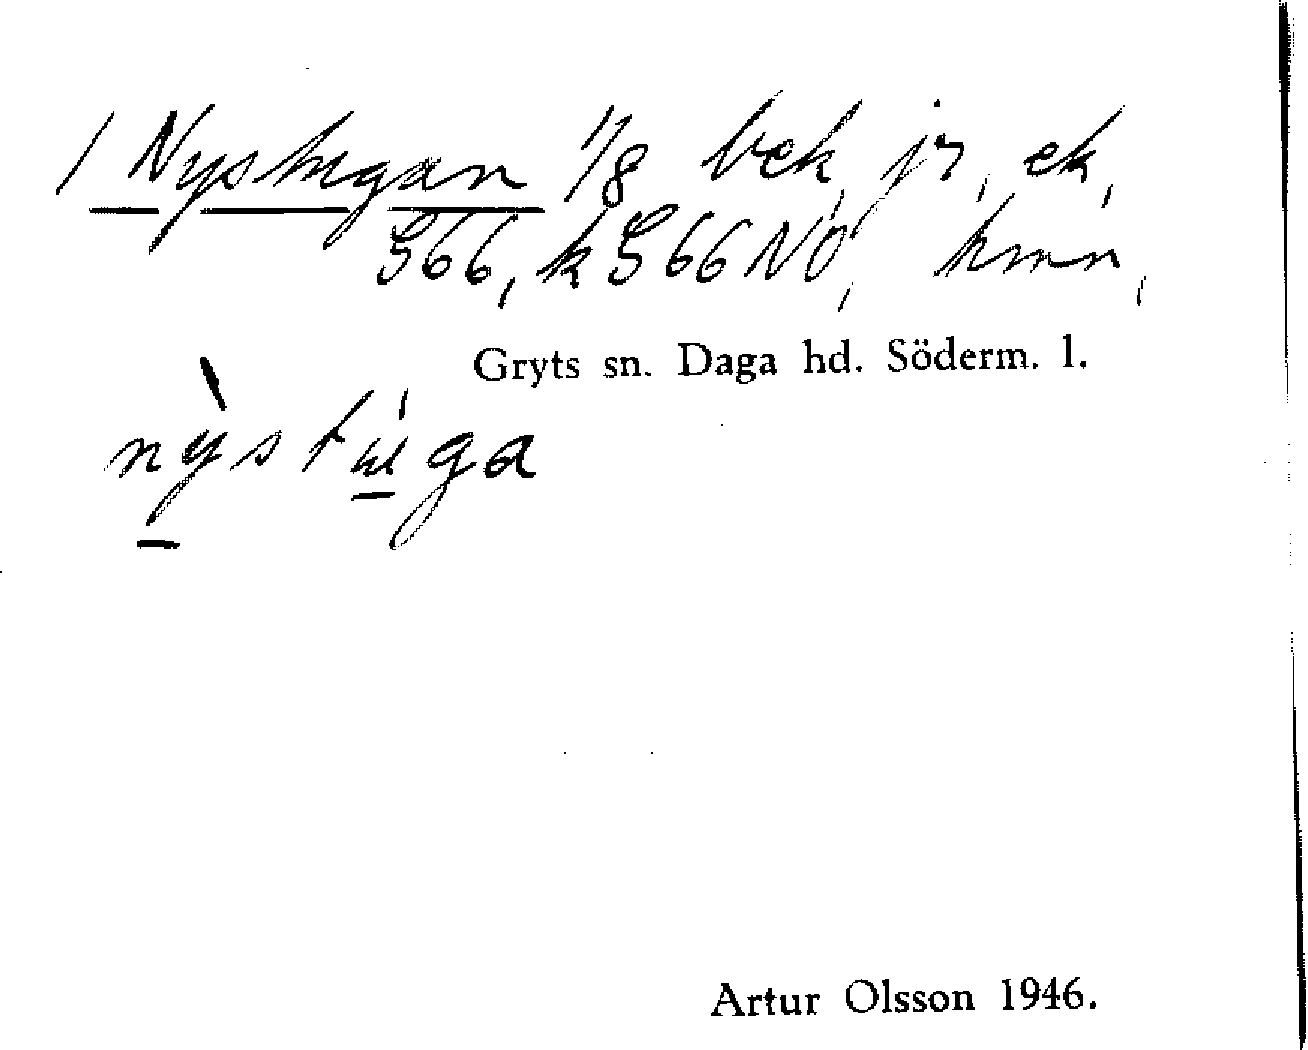 / Nystugan 1/8 bek, jr, ek,
G66, k G66 NO, hmn,
Gryts sn. Daga hd. Söderm. l.
nỳstúga
Artur Olsson 1946.